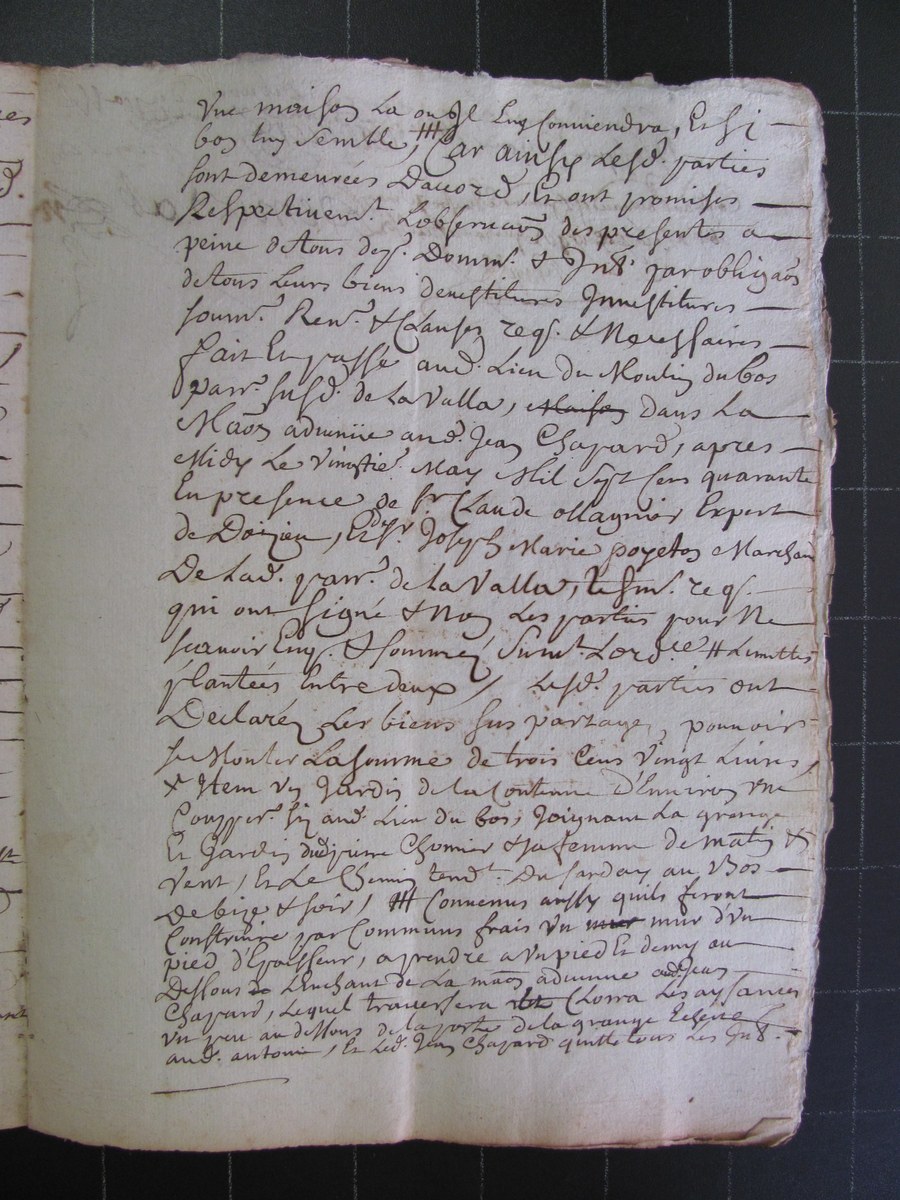 Vne maison La ou Il luy Conuiendra, Et si
bon luy Semble, ⧻ Car ainsy Lesd. parties
sont demeurées Daccord, Et ont promises
Respectiuemt. Lobseruaõn des presentes a
peine de tous desp. Domm. & Int. par obligaõn
de tous Leurs biens deuestitures Inuestitures
soumn. Renn. & Clauses req. & Necessaires
fait Et passé aud. Lieu du Moulin du bos
parr. susd. de La Valla, Maison dans La
Maõn aduenüe aud. Jean Chapard, apres
Midy Le Vingtie. May Mil Sept Cens quarante
En presence de sr. Claude ollagnier Expert
de Doizieu, Et de sr. Joseph Marie poyeton Marchan
De Lad. parr. de La Valla, tesm. req.
qui ont signé & Non Les parties pour Ne
scauoir Enq. & sommés Suiut. Lordce. # Limittes
plantées Entre deux / Lesd. parties ont
Declaréz Les biens sus partagez pouuoir
se Monter La somme de trois Cens Vingt Liures,
x Item Vn Jardin de la Contenue d'Enuiron vne
Coupper. sis aud. Lieu du bos, Joignant La grange
Et Jardin dud. pierre Chomier & sa femme de matin &
Vent, Et Le Chemin tendt. Du sarday au Bos
De bize & soir / ⧻ Conuenus aussy quils feront
Construire par Communs frais Vn mur mur d'Vn
pied d'Epaisseur, a prendre a Vn pied Et demy au
Dessous De L'Enchant de La maõn aduenue aud. Jean
Chapard, Lequel trauersera Et Clorra Les aysances
Vn peu au dessous de la porte de la grange Echeue
aud. antoine, Et Led. Jean Chapard quitte tous Les Int.